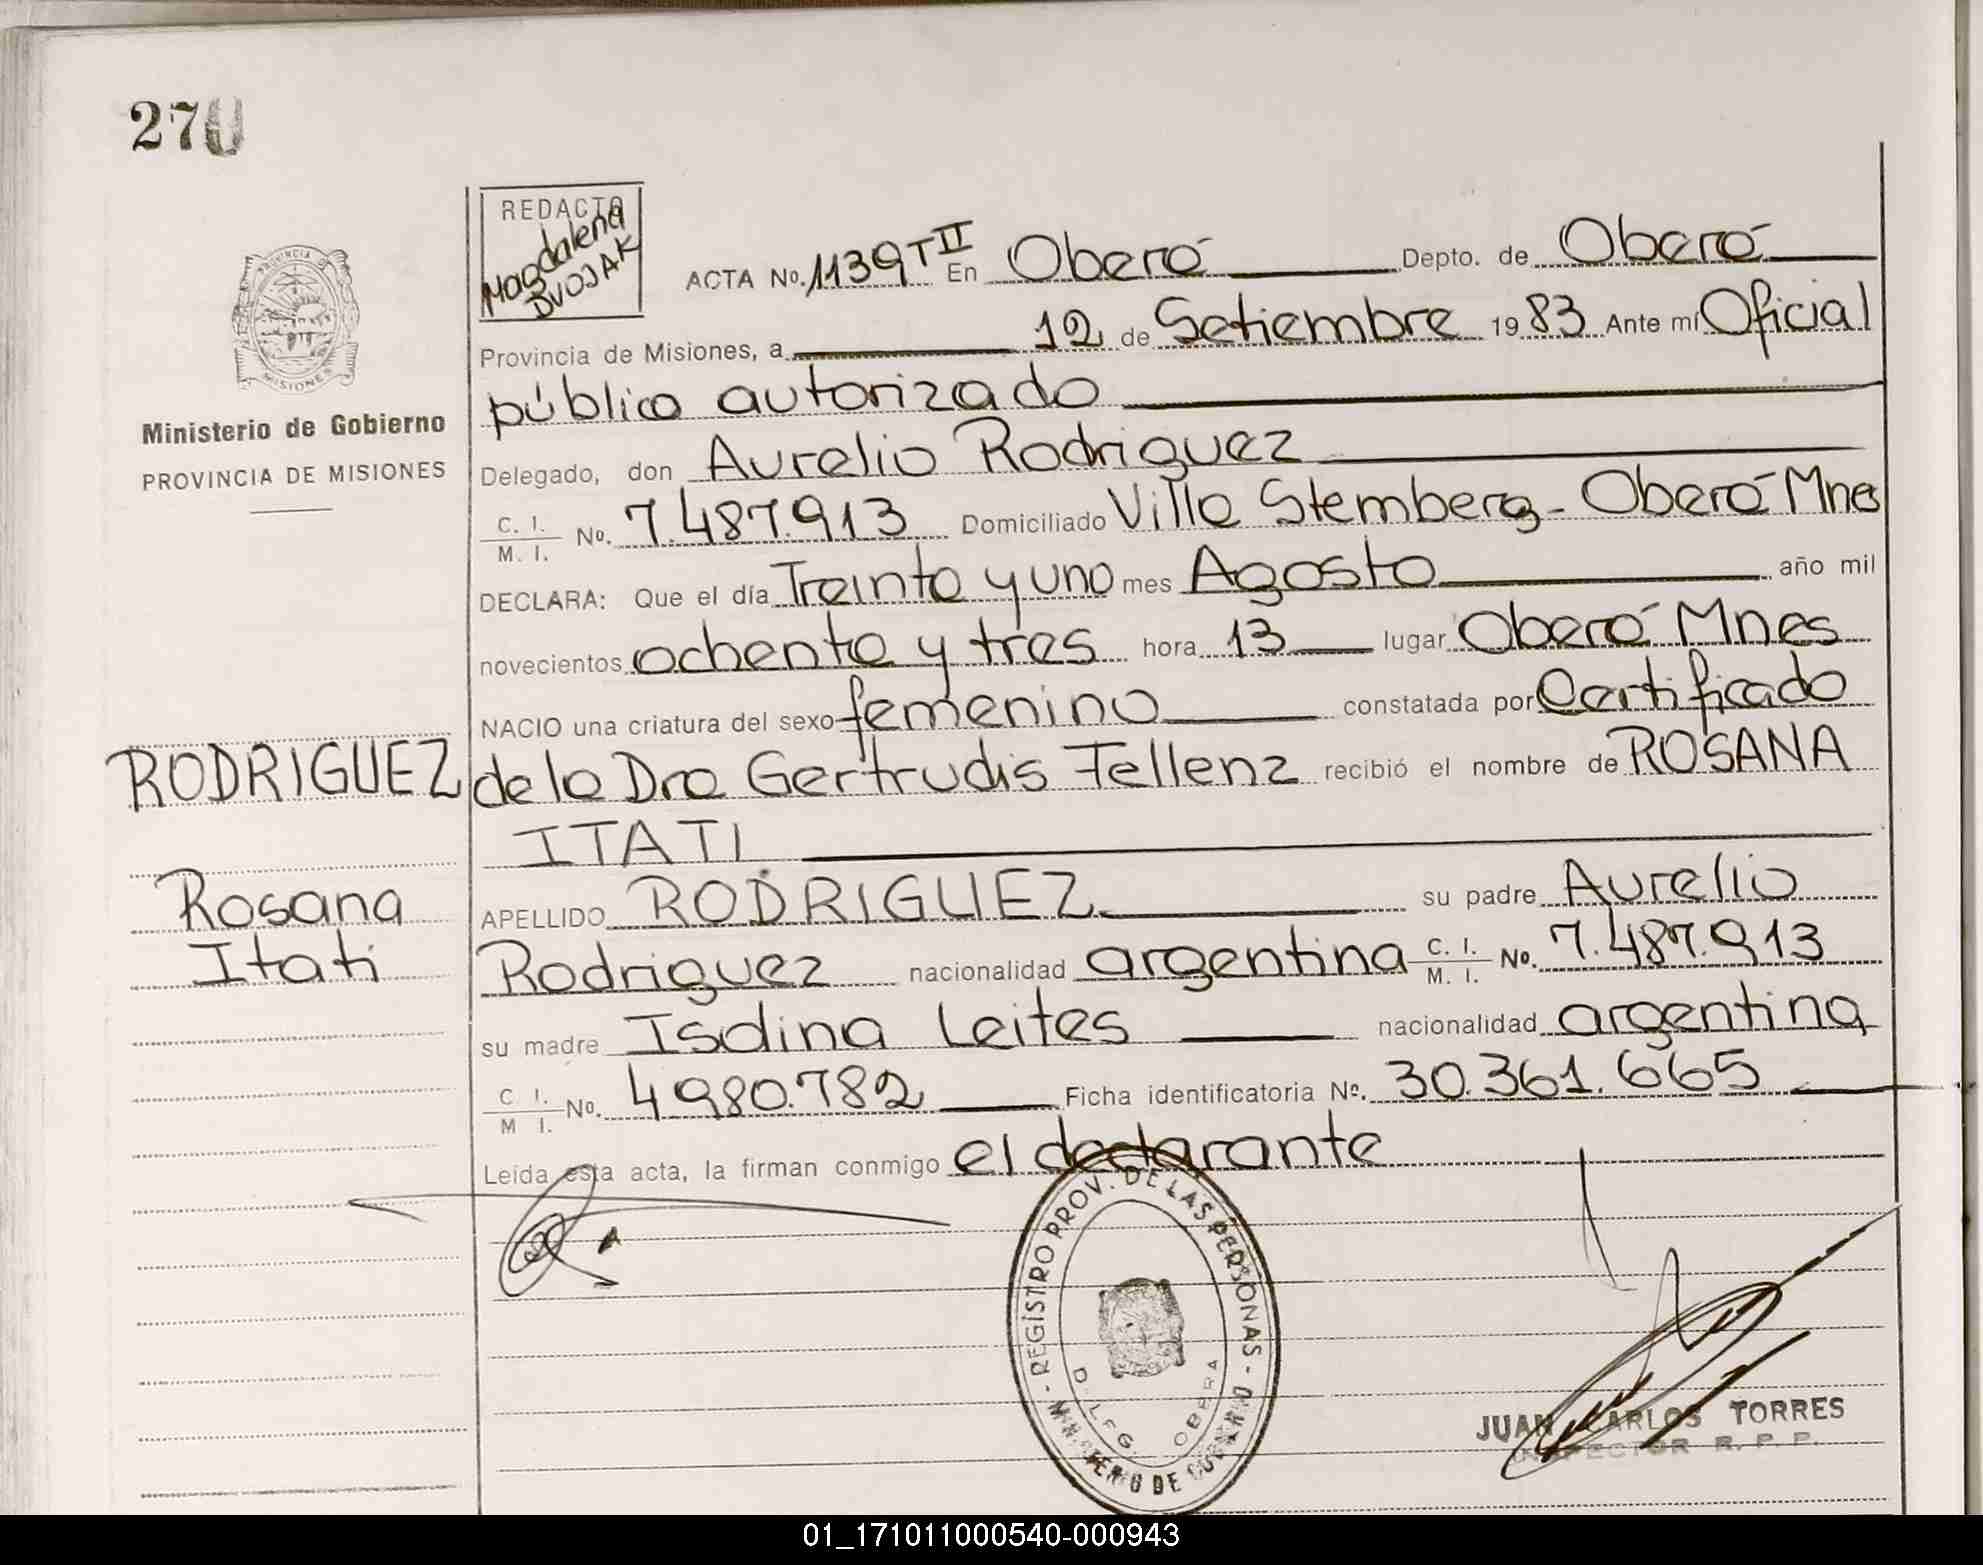 270
REDACTO
Magdalena
DVOJAK
ACTA No. 1139 T II En Oberá Depto. de Oberá
Provincia de Misiones, a 12 de Setiembre 1983 Ante mí Oficial
público autorizado
Delegado, don Aurelio Rodriguez
C. I.
M. I. No. 7.487.913 Domiciliado Villa Stemberg - Oberá Mnes
DECLARA: Que el día Treinta y uno mes Agosto año mil
novecientos ochenta y tres hora 13 lugar Oberá Mnes
NACIO una criatura del sexo femenino constatada por Certificado
de la Dra Gertrudis Fellenz recibió el nombre de ROSANA
ITATI
APELLIDO RODRIGUEZ su padre Aurelio
Rodriguez nacionalidad argentina C. I. M. I. No. 7.487.913
su madre Isolina Leites nacionalidad argentina
C I. M I. No. 4980.782 Ficha identificatoria Nº. 30.361.665
Leída esta acta, la firman conmigo el declarante
PROVINCIA DE
MISIONES
Ministerio de Gobierno
PROVINCIA DE MISIONES
RODRIGUEZ
Rosana
Itati
- REGISTRO PROV. DE LAS PERSONAS -
DELEG. OBERA
MINISTERIO DE GOBIERNO
JUAN CARLOS TORRES
INSPECTOR R. P. P.
01_171011000540-000943